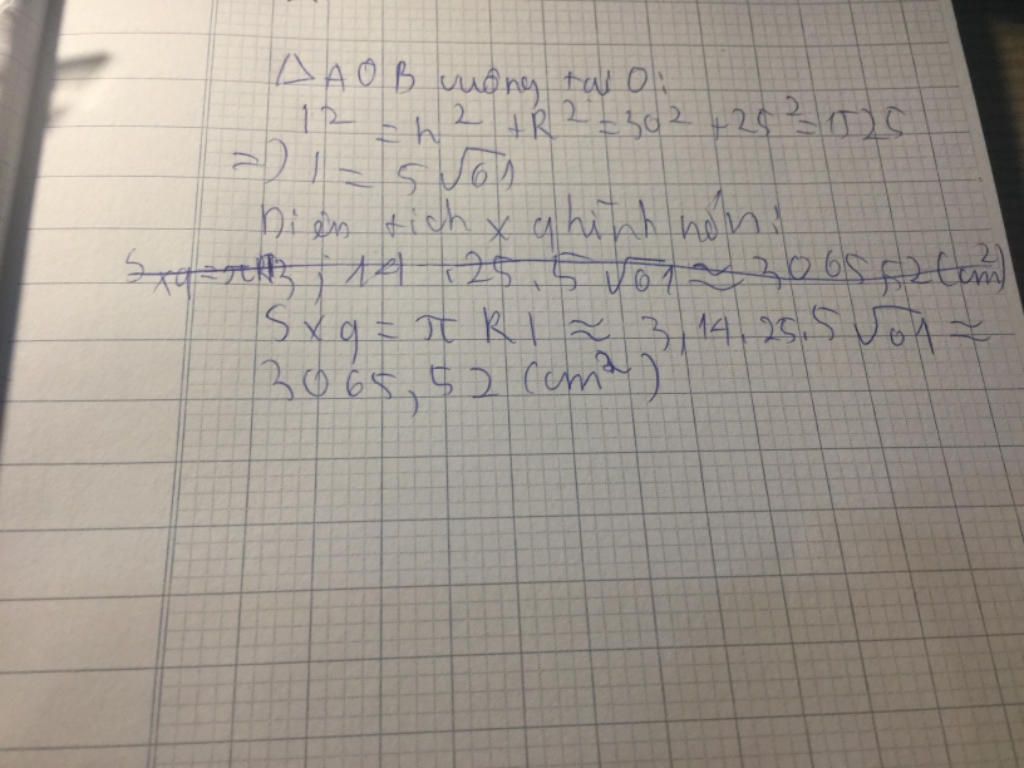 Δ AOB vuông tại O:
l² = h² + R² = 30² + 25² = 1525
=> l = 5√61
Diện tích xq hình nón:
Sxq = π 3,14 .25. 5√61 ≈ 3065,52 (cm²)
Sxq = π R l ≈ 3,14.25.5√61 ≈
3065,52 (cm²)